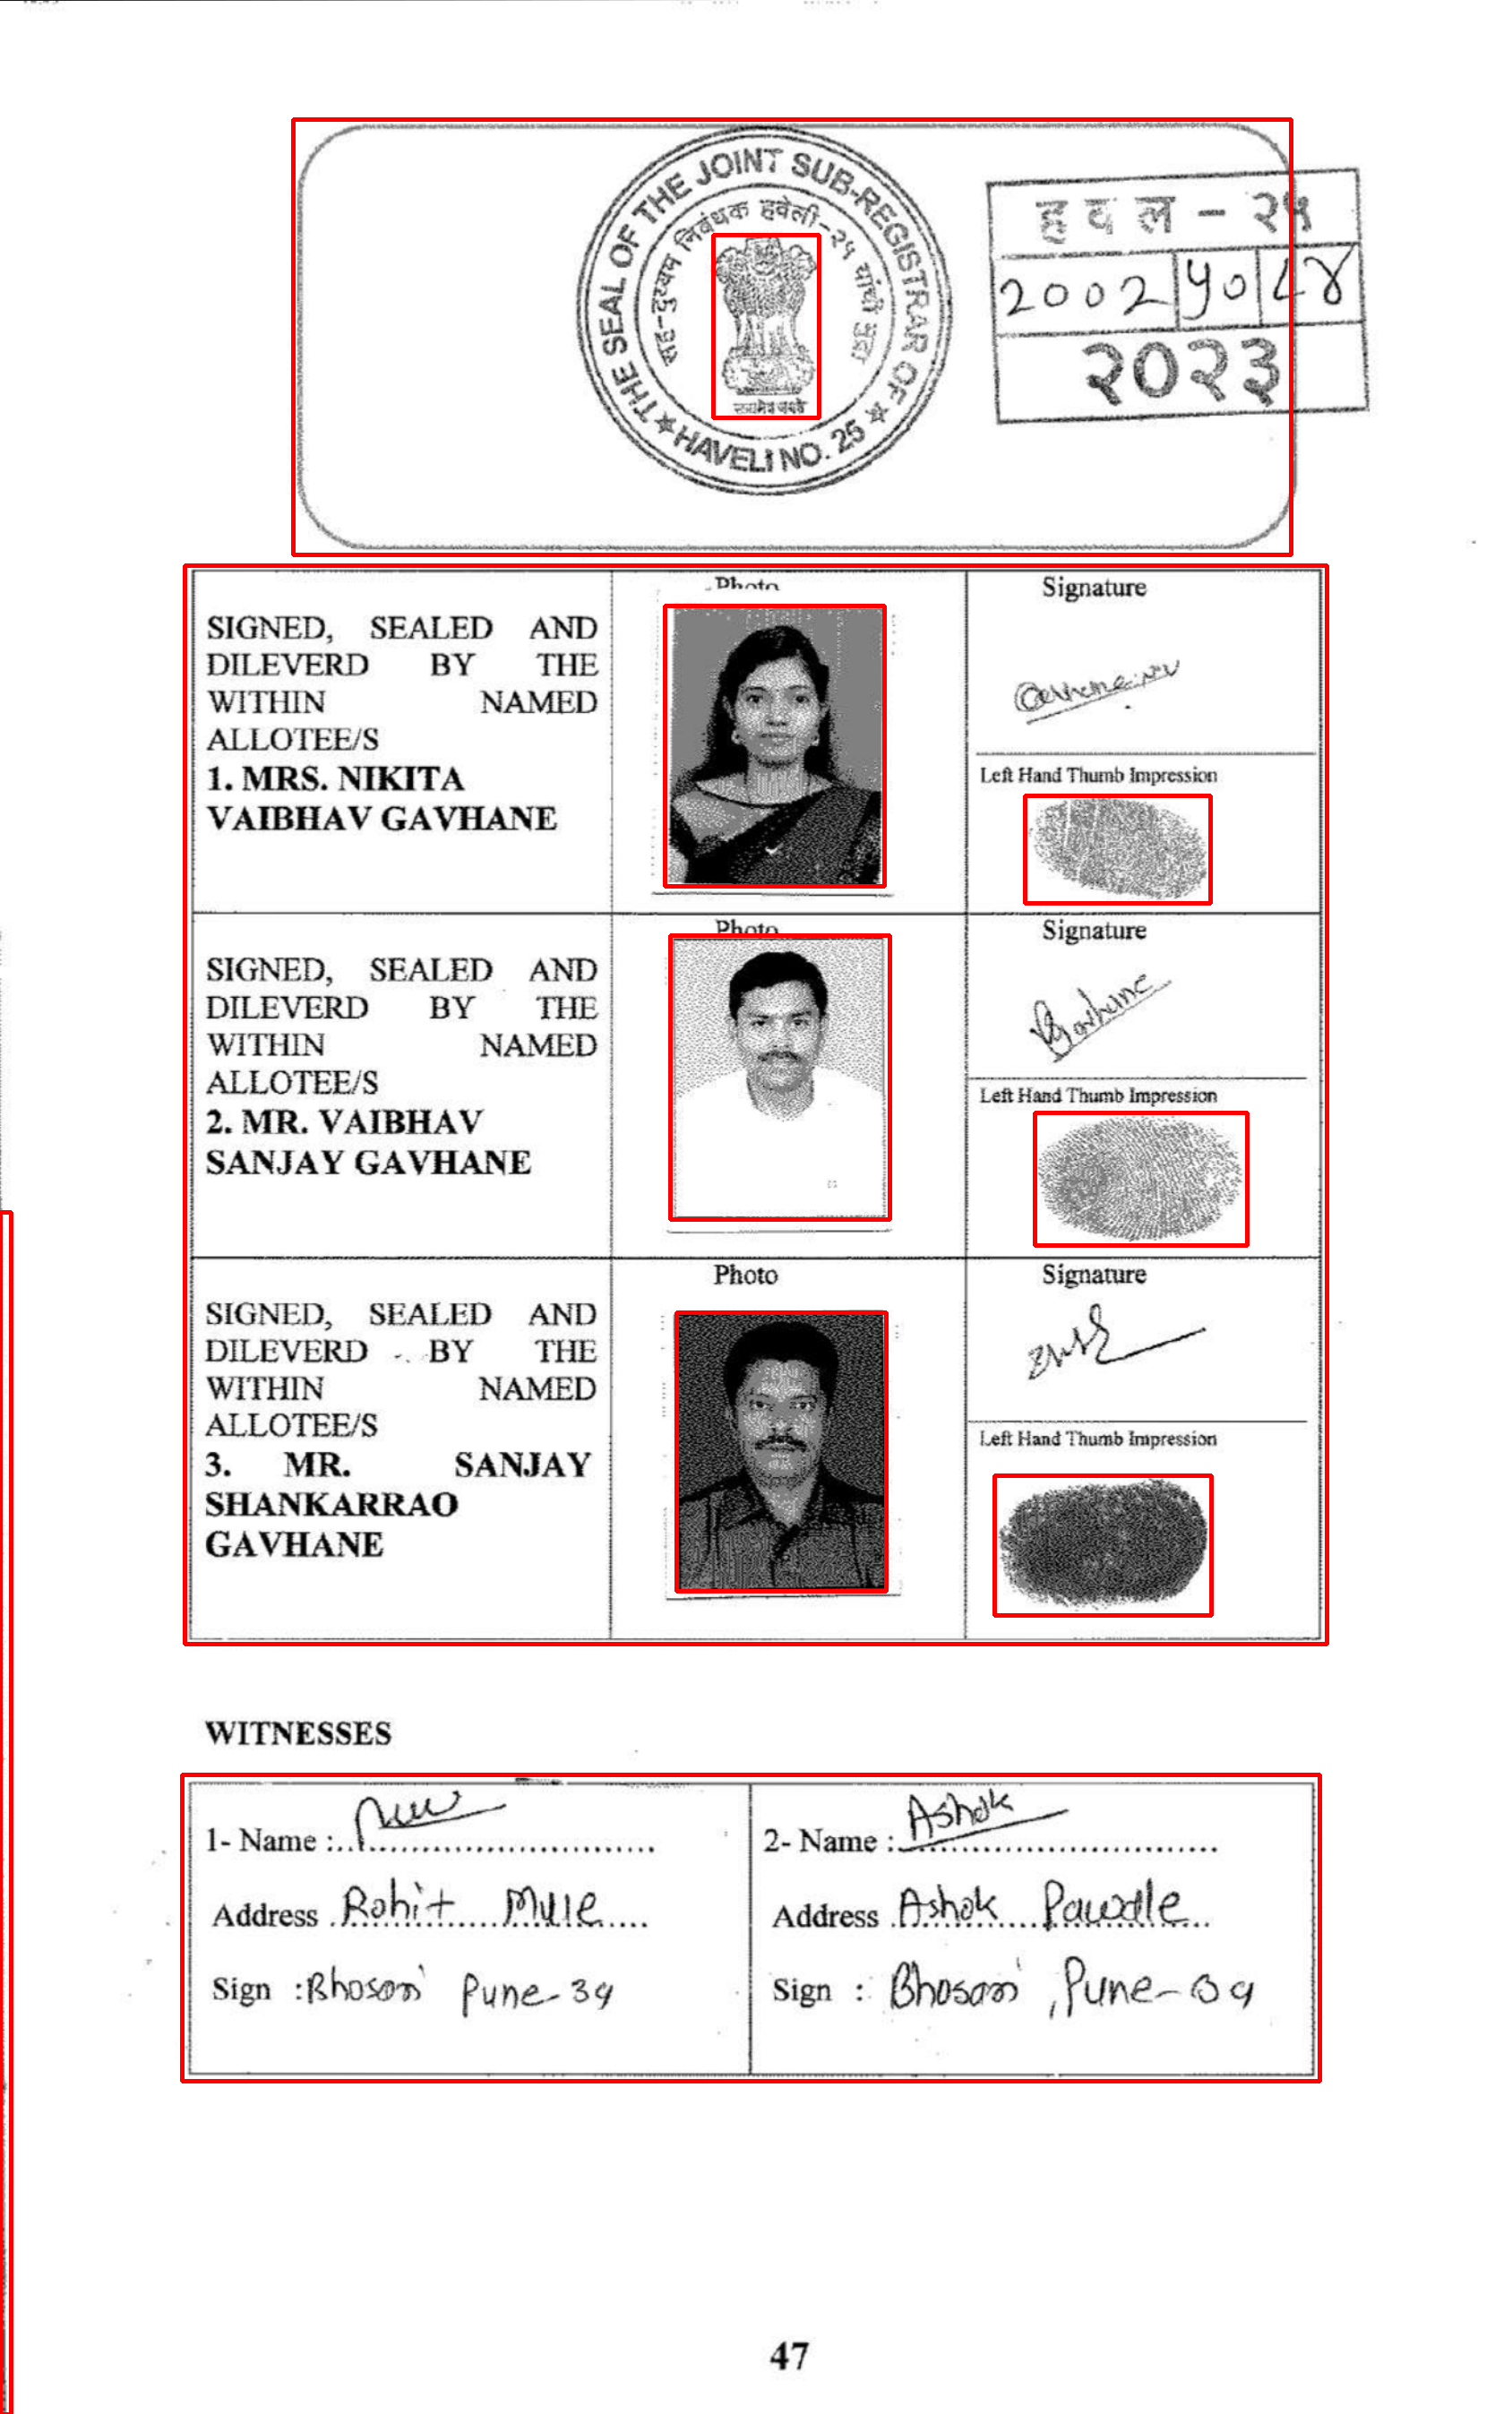 THE SEAL OF THE JOINT SUB-REGISTRAR OF
★ HAVELI NO. 25 ★
सह-दुय्यम निबंधक हवेली-२५ यांची मुद्रा
सत्यमेव जयते
हवल - २५
2002 50 84
२०२३
Photo
Signature
SIGNED, SEALED AND
DILEVERD BY THE
WITHIN NAMED
ALLOTEE/S
1. MRS. NIKITA
VAIBHAV GAVHANE
Left Hand Thumb Impression
Photo
Signature
SIGNED, SEALED AND
DILEVERD BY THE
WITHIN NAMED
ALLOTEE/S
2. MR. VAIBHAV
SANJAY GAVHANE
Gavhane
Left Hand Thumb Impression
Photo
Signature
SIGNED, SEALED AND
DILEVERD BY THE
WITHIN NAMED
ALLOTEE/S
3. MR. SANJAY
SHANKARRAO
GAVHANE
Left Hand Thumb Impression
WITNESSES
1- Name :
Address Rohit Mule
Sign : Bhosari Pune-39
2- Name : Ashok
Address Ashok
Sign : Bhosari, Pune-39
47